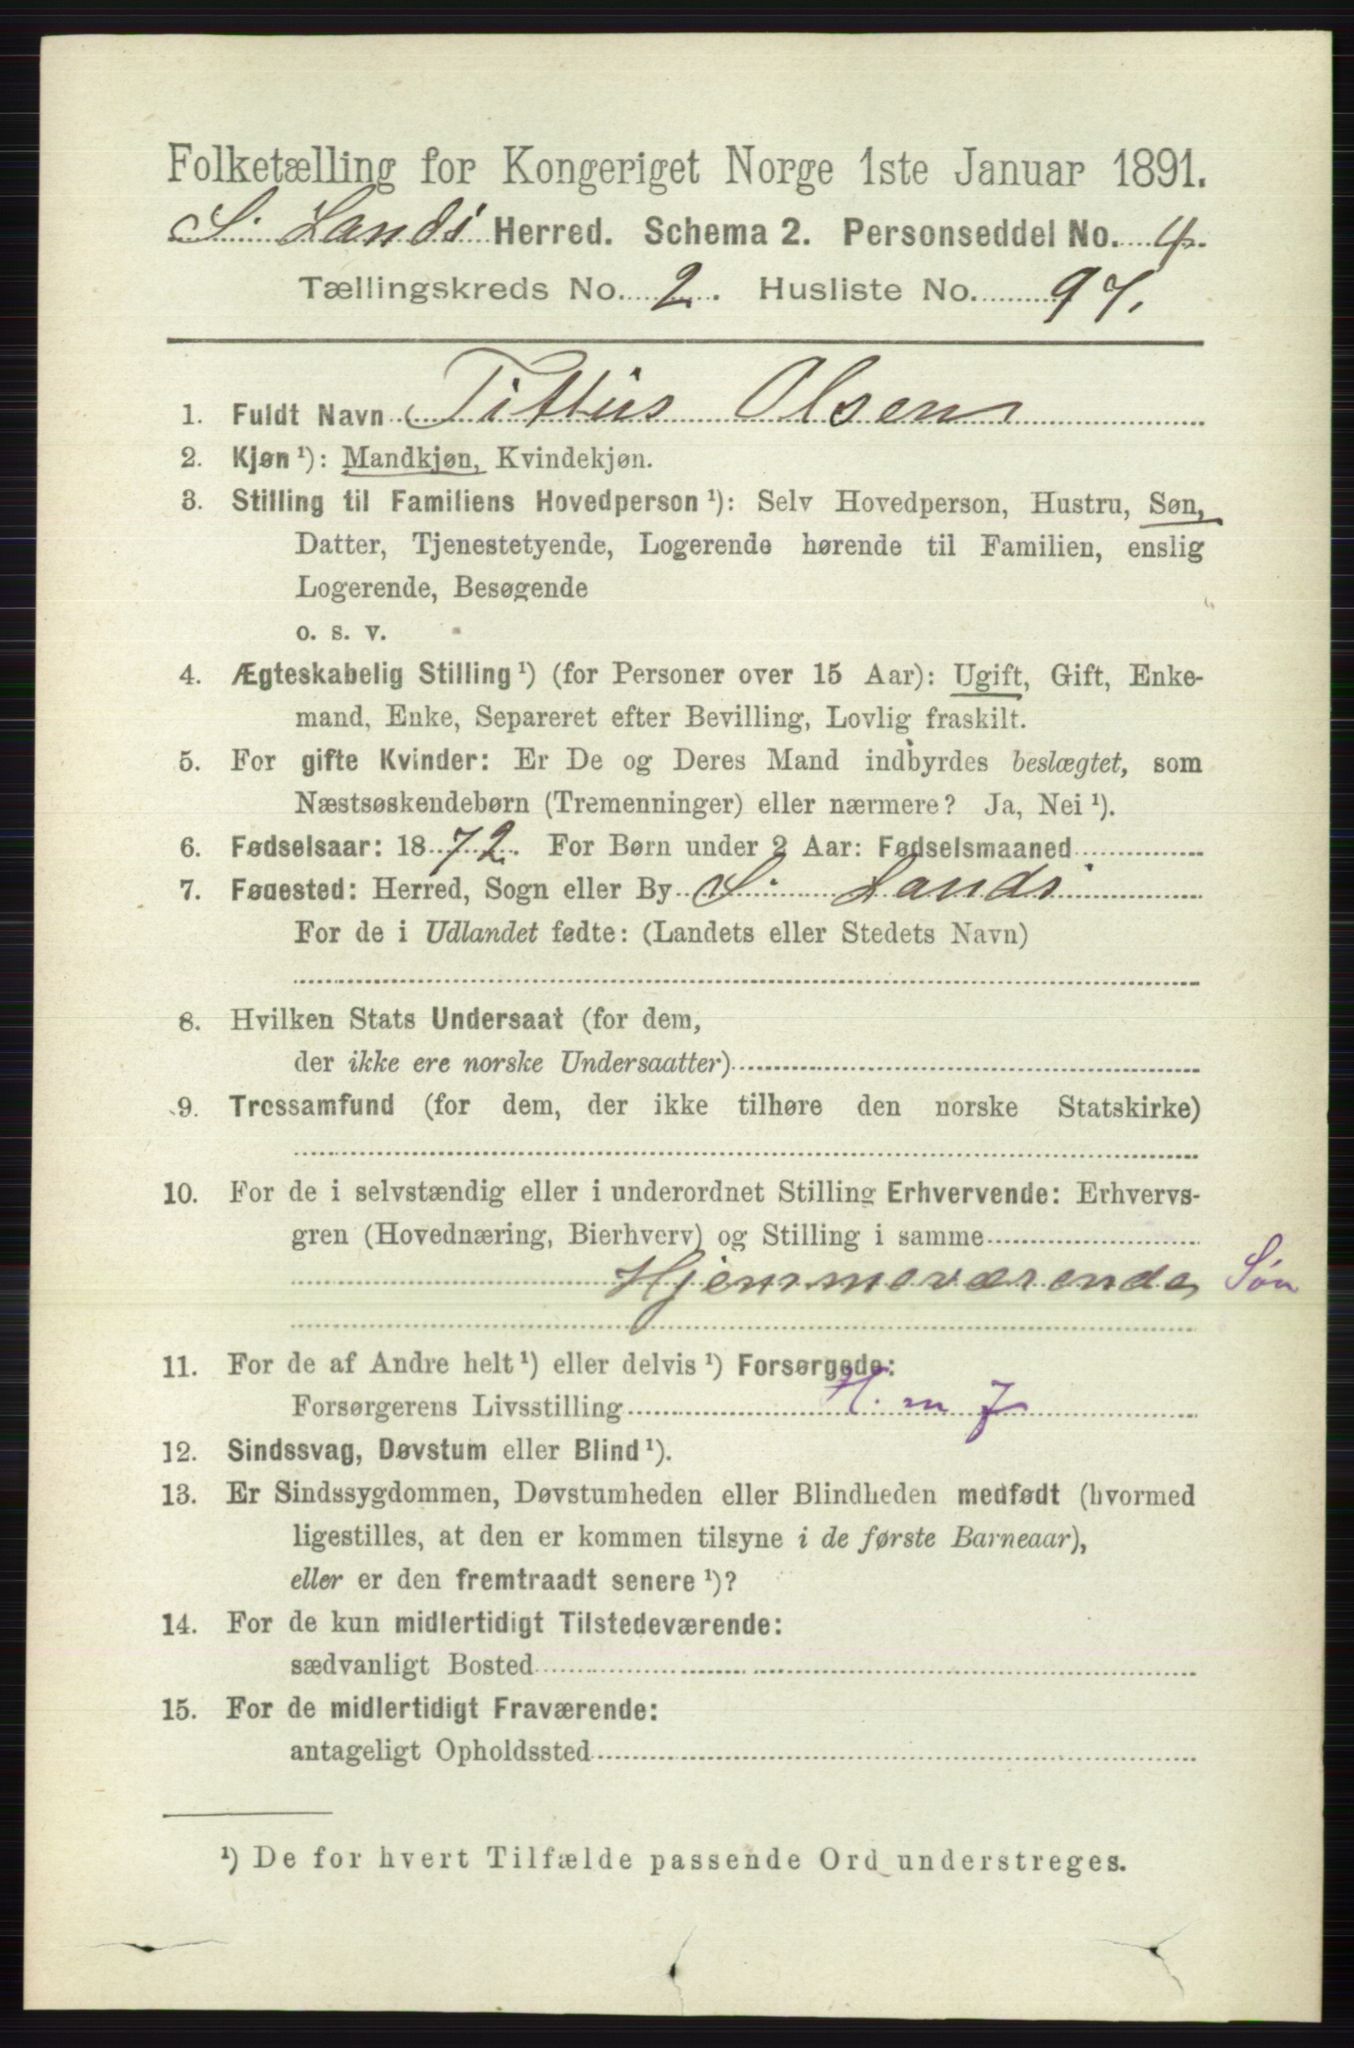 Folketælling for Kongeriget Norge 1ste Januar 1891.
S. Lands Herred. Schema 2. Personseddel No. 4.
Tællingskreds No. 2. Husliste No. 97.
1. Fuldt Navn Tittus Olsen
2. Kjøn ¹): Mandkjøn, Kvindekjøn.
3. Stilling til Familiens Hovedperson ¹): Selv Hovedperson, Hustru, Søn,
Datter, Tjenestetyende, Logerende hørende til Familien, enslig
Logerende, Besøgende
o. s. v.
4. Ægteskabelig Stilling ¹) (for Personer over 15 Aar): Ugift, Gift, Enke-
mand, Enke, Separeret efter Bevilling, Lovlig fraskilt.
5. For gifte Kvinder: Er De og Deres Mand indbyrdes beslægtet, som
Næstsøskendebørn (Tremenninger) eller nærmere? Ja, Nei ¹).
6. Fødselsaar: 1872. For Børn under 2 Aar: Fødselsmaaned
7. Føuested: Herred, Sogn eller By S. Lands
For de i Udlandet fødte: (Landets eller Stedets Navn)
8. Hvilken Stats Undersaat (for dem,
der ikke ere norske Undersaatter)
9. Trossamfund (for dem, der ikke tilhøre den norske Statskirke)
10. For de i selvstændig eller i underordnet Stilling Erhvervende: Erhvervs-
gren (Hovednæring, Bierhverv) og Stilling i samme
Hjemmeværende Søn
11. For de af Andre helt ¹) eller delvis ¹) Forsørgede:
Forsørgerens Livsstilling H. m 7
12. Sindssvag, Døvstum eller Blind ¹).
13. Er Sindssygdommen, Døvstumheden eller Blindheden medfødt (hvormed
ligestilles, at den er kommen tilsyne i de første Barneaar),
eller er den fremtraadt senere ¹)?
14. For de kun midlertidigt Tilstedeværende:
sædvanligt Bosted
15. For de midlertidigt Fraværende:
antageligt Opholdssted
¹) De for hvert Tilfælde passende Ord understreges.